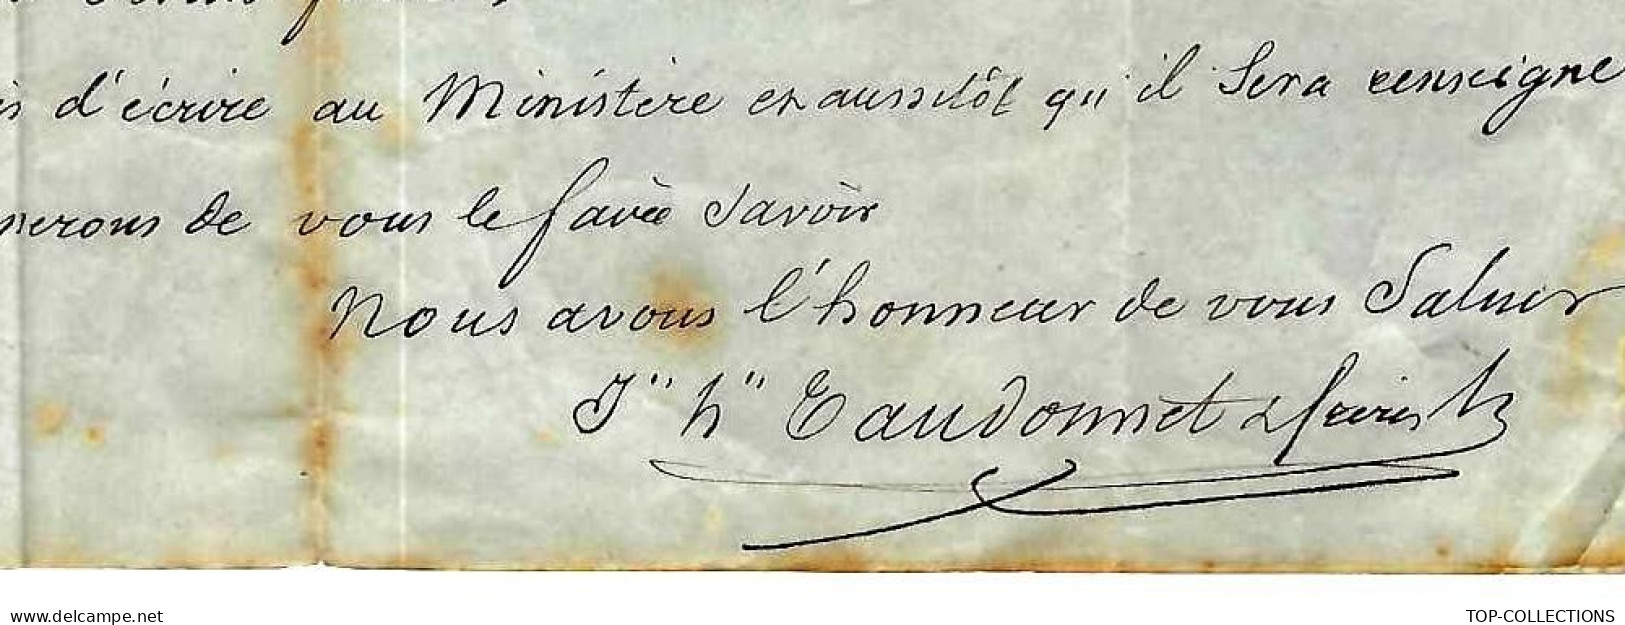 d'écrire au Ministère et aussitôt qu'il Sera renseigné
de vous le faire Savoir
Nous avons l'honneur de vous Saluer
J" h" Taudonnet & frères
www.delcampe.net
TOP-COLLECTIONS